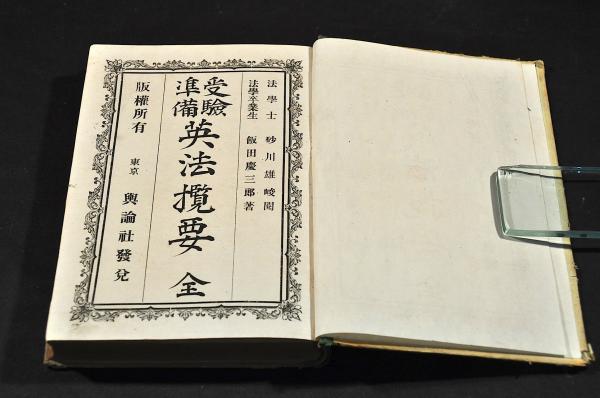 法學士 砂川雄峻閲
法學卒業生 飯田慶三郎著
受驗準備 英法攬要 全
版權所有 東京 輿論社發兌